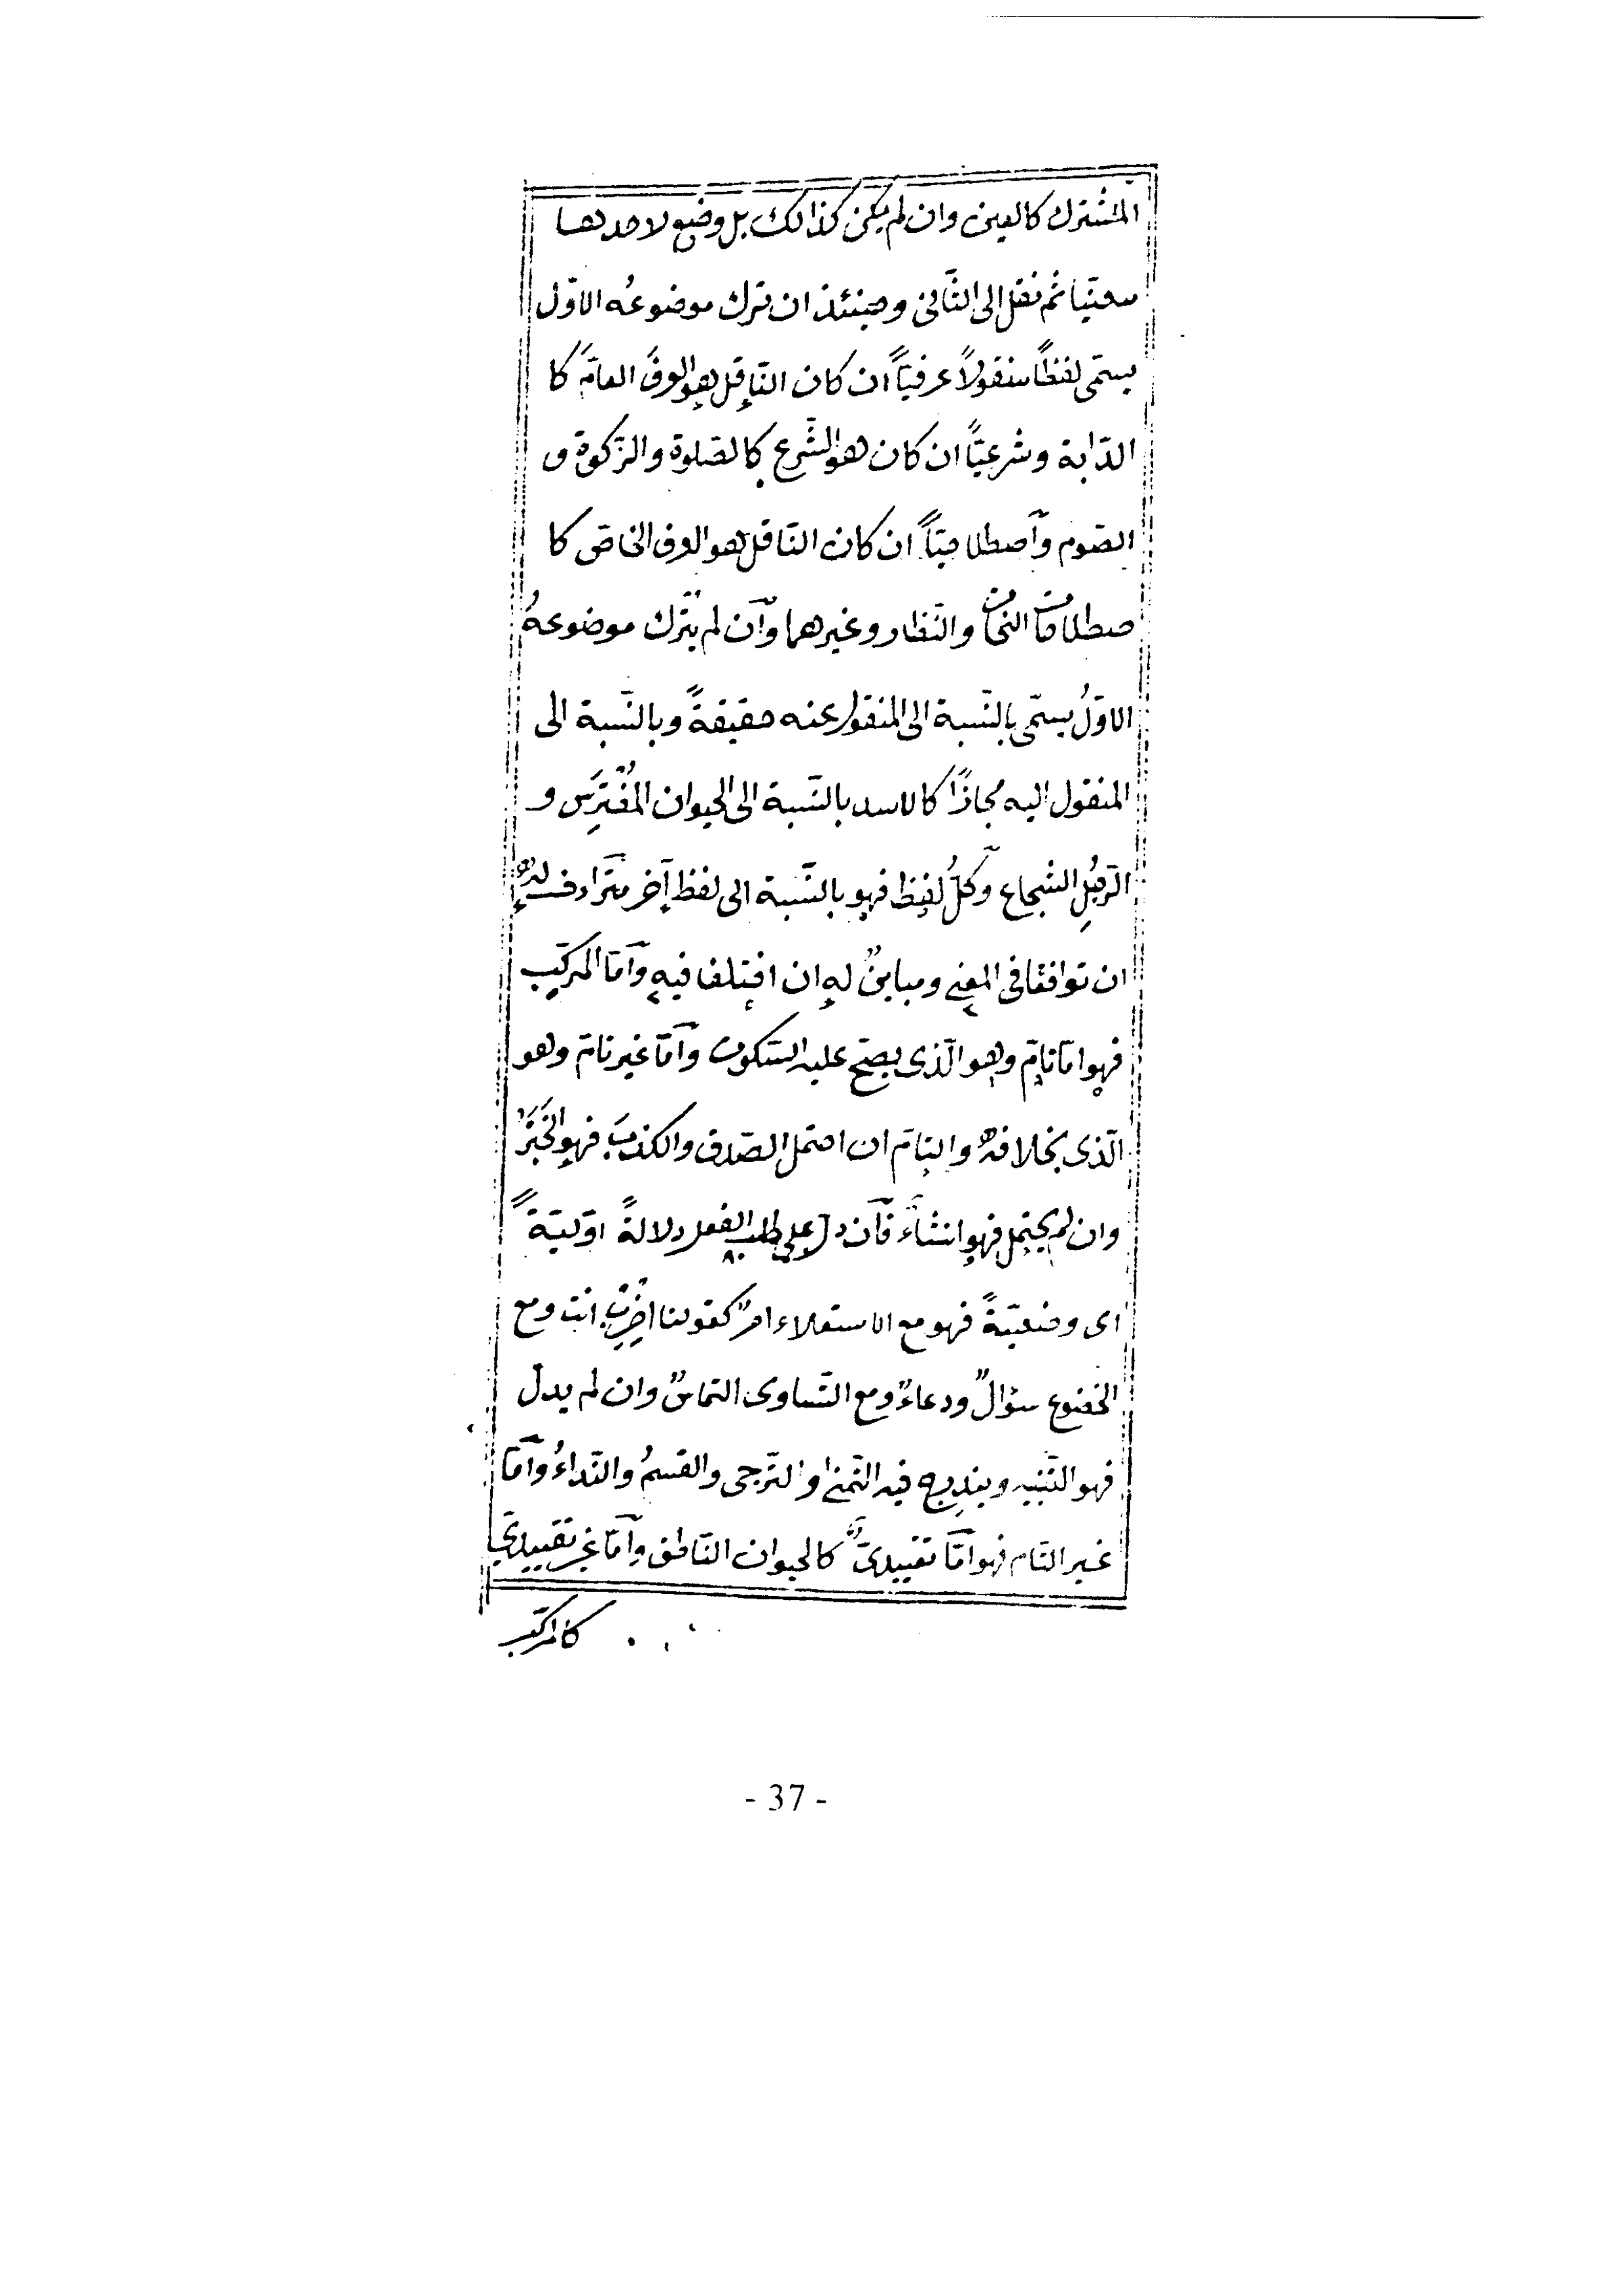 المشترك كالعين وان لم يكن كذالك بل وضع لاحدهما
معنيا ثم نقل الى الثّانى وحينئذ ان ترك موضوعُه الاوّل
يسمّى لفظاً منقولاً عرفيّاً ان كان النّاقل هو العرف العامّ كا
الدّابة وشرعيّاً ان كان هو الشّرع كالصّلوة والزّكوة و
الصّوم وآصطلاحيّاً ان كان النّاقل هو العرف الخاصّ كا
صطلاحات النحات والنّظار وغيرهما وآن لم يترك موضوعهُ
الاوّلُ يسمّى بالنّسبة الى المنقول عنه حقيقةً وبالنّسبة الى
المنقول اليه مجازاً كالاسد بالنّسبة الى الحيوان المُفْتَرِس و
الرّجُلِ الشجاع وكلُّ لفظ فهو بالنّسبة الى لفظ آخر مترادف له
ان توافقا فى المعنى ومباينٌ له ان اختلفا فيه وآمّا المركّب
فهو امّا تامّ وهو الّذى يصحّ عليه السّكوت وآمّا غير تامّ وهو
الّذى بخلافه والتامّ ان احتمل الصّدق والكذب فهو الخَبَرُ
وان لم يحتمل فهو انشاء فآن دلّ على طلب الفعل دلالةً اوّليّةً
اى وضعيّةً فهو مع الاستعلاء امرٌ كقولنا اضْرِبْ انت ومع
الخضوع سؤالٌ ودعاءٌ ومع التّساوى التماسٌ وان لم يدل
فهو التّنبيه ويندرج فيه التّمنى والترّجى والقسمُ والنّداءُ وآمّا
غير التام فهو امّا تقييدىٌّ كالحيوان النّاطق وآمّا غير تقييدىّ
كالمركّب
- 37 -